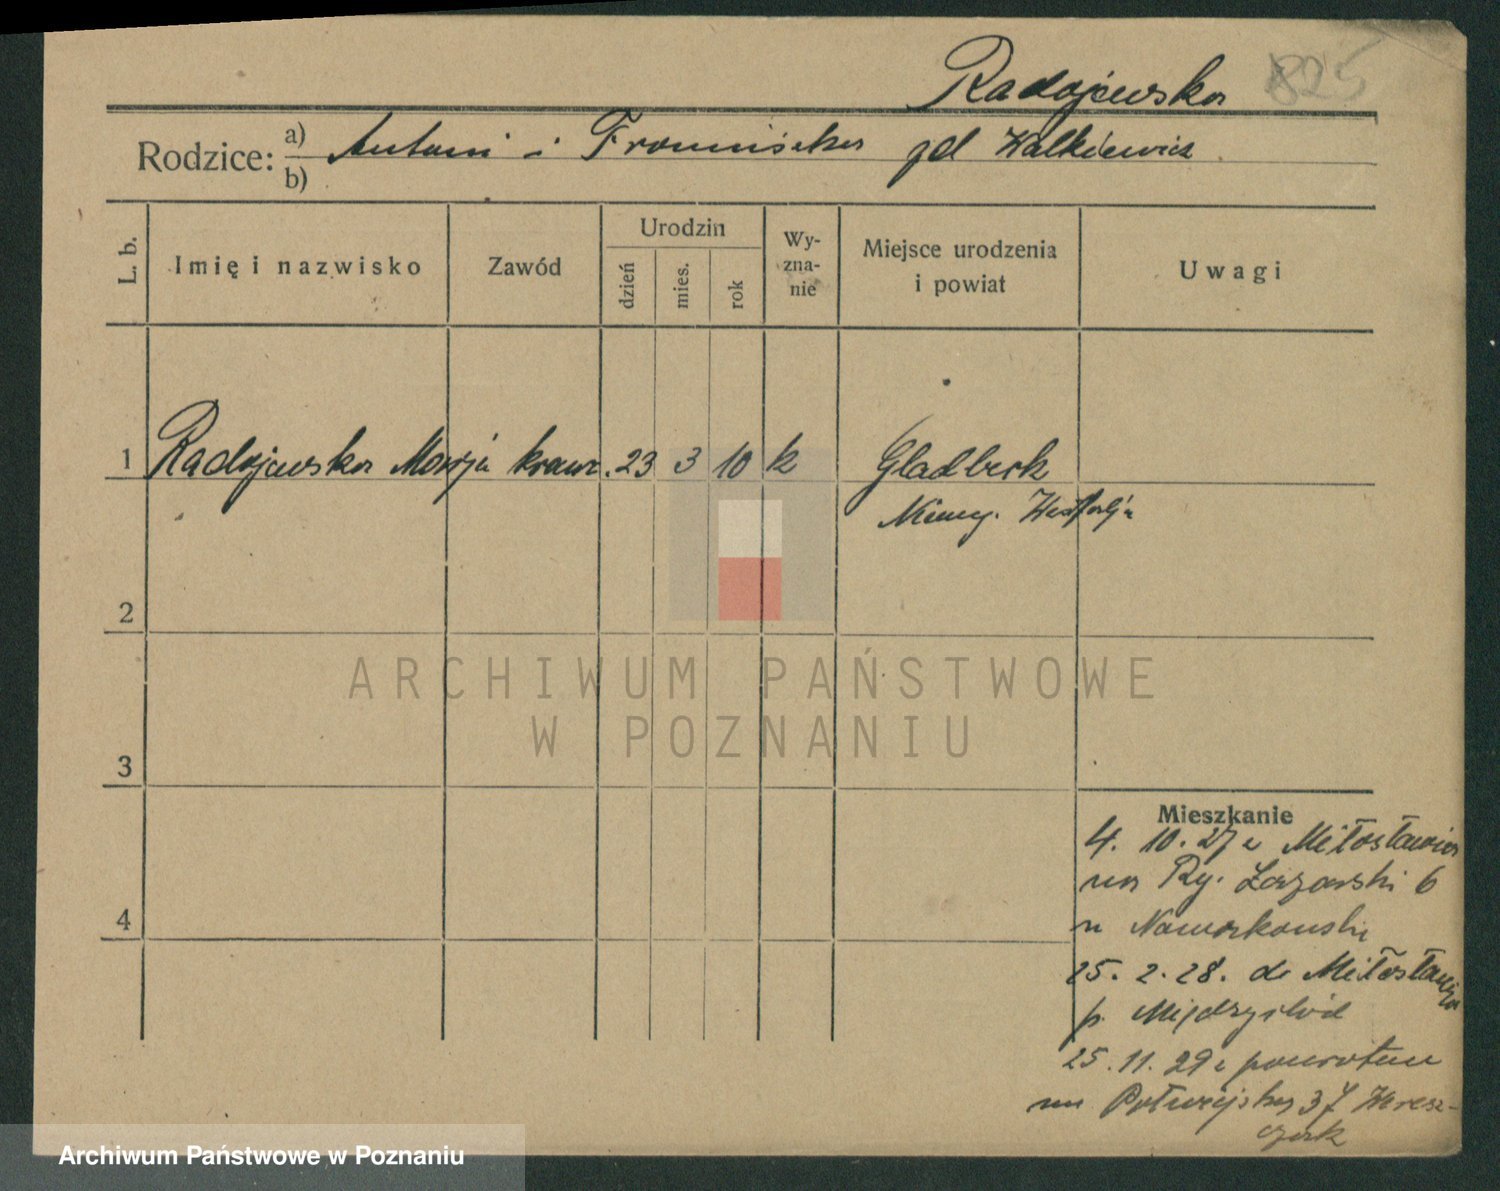 Radojewska 825
Rodzice: a) Antoni i Franciszka zd Walkiewicz
b)
L. b. Imię i nazwisko Zawód Urodzin dzień mies. rok Wy-zna-nie Miejsce urodzenia i powiat Uwagi
1 Radojewska Marja kraw. 23 3 10 k Gladbeck
Niemcy. Westfalja
2
ARCHIWUM PAŃSTWOWE
W POZNANIU
3
Mieszkanie
4. 10. 27 z Miłosławia
na Ry. Łazarski 6
u Nawrkowski
4
25. 2. 28. do Miłosławia
p. Międzychód
25. 11. 29 z powrotem
na Półwiejską 37 Wresz-
czak
Archiwum Państwowe w Poznaniu